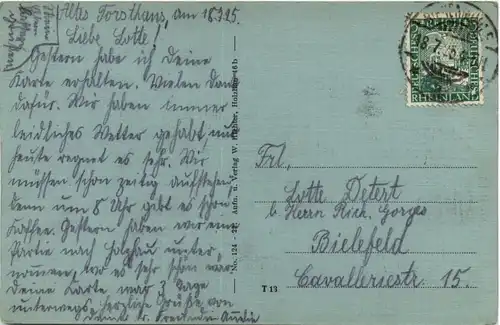 Altes Forsthaus, am 18.7.25.
Liebe Lotte!
Gestern habe ich deine
Karte erhalten. Vielen Dank
dafür. Wir haben immer
leidliches Wetter gehabt, nur
heute regnet es sehr. Wir
müssen schon zeitig aufstehen
denn um 8 Uhr gibt es schon
Kaffee. Gestern haben wir eine
Partie nach Holzhau unter,
nommen, wo es sehr schön war
deine Karte war 3 Tage
unterwegs herzliche Grüße von
deiner tr. Freundin
No. 124 - 25 Aufn. u. Verlag W.
T 13
DEUTSCHES REICH
RHEINLAND
Frl.
Lotte Detert
b. Herrn Rich. Gorges
Bielefeld
Cavalleriestr. 15.